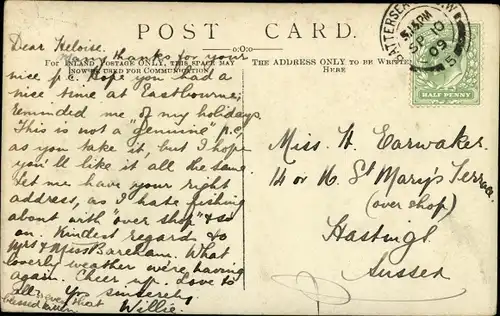 POST CARD.
FOR INLAND POSTAGE ONLY, THIS SPACE MAY
NOW BE USED FOR COMMUNICATION.
THE ADDRESS ONLY TO BE WRITTEN
HERE
BATTERSEA S.W.
5.15 PM
SP 10
09
5
HALF PENNY
Dear Heloise.
Many thanks for your
nice p.c. Hope you had a
nice time at Eastbourne,
reminded me of my holidays.
This is not a "genuine" p.c.
as you take it, but I hope
you'll like it all the same.
Let me have your right
address, as I hate fishing
about with "over shop" & so
on. Kindest regard to
Mrs & Miss Bareham. What
loverly weather were having
again. Cheer up. Love to
all. Yrs sincerely
Willie.
never that
blessed
Miss H. Earwaker.
14 or 16. St Mary's Terrace
(over shop)
Hastings
Sussex